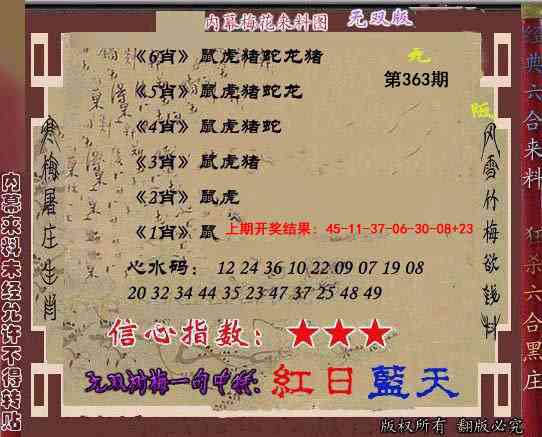 内幕梅花来料图 无双版
《6肖》鼠虎猪蛇龙猪
第363期
《5肖》鼠虎猪蛇龙
《4肖》鼠虎猪蛇
《3肖》鼠虎猪
《2肖》鼠虎
《1肖》鼠
上期开奖结果：45-11-37-06-30-08+23
心水码： 12 24 36 10 22 09 07 19 08
20 32 34 44 35 23 47 37 25 48 49
信心指数：★★★
紅日藍天
版权所有 翻版必究
寒梅屠庄生肖
风雪竹梅欲钱料
内幕来料未经允许不得转贴
经典六合来料
狂杀六合黑庄